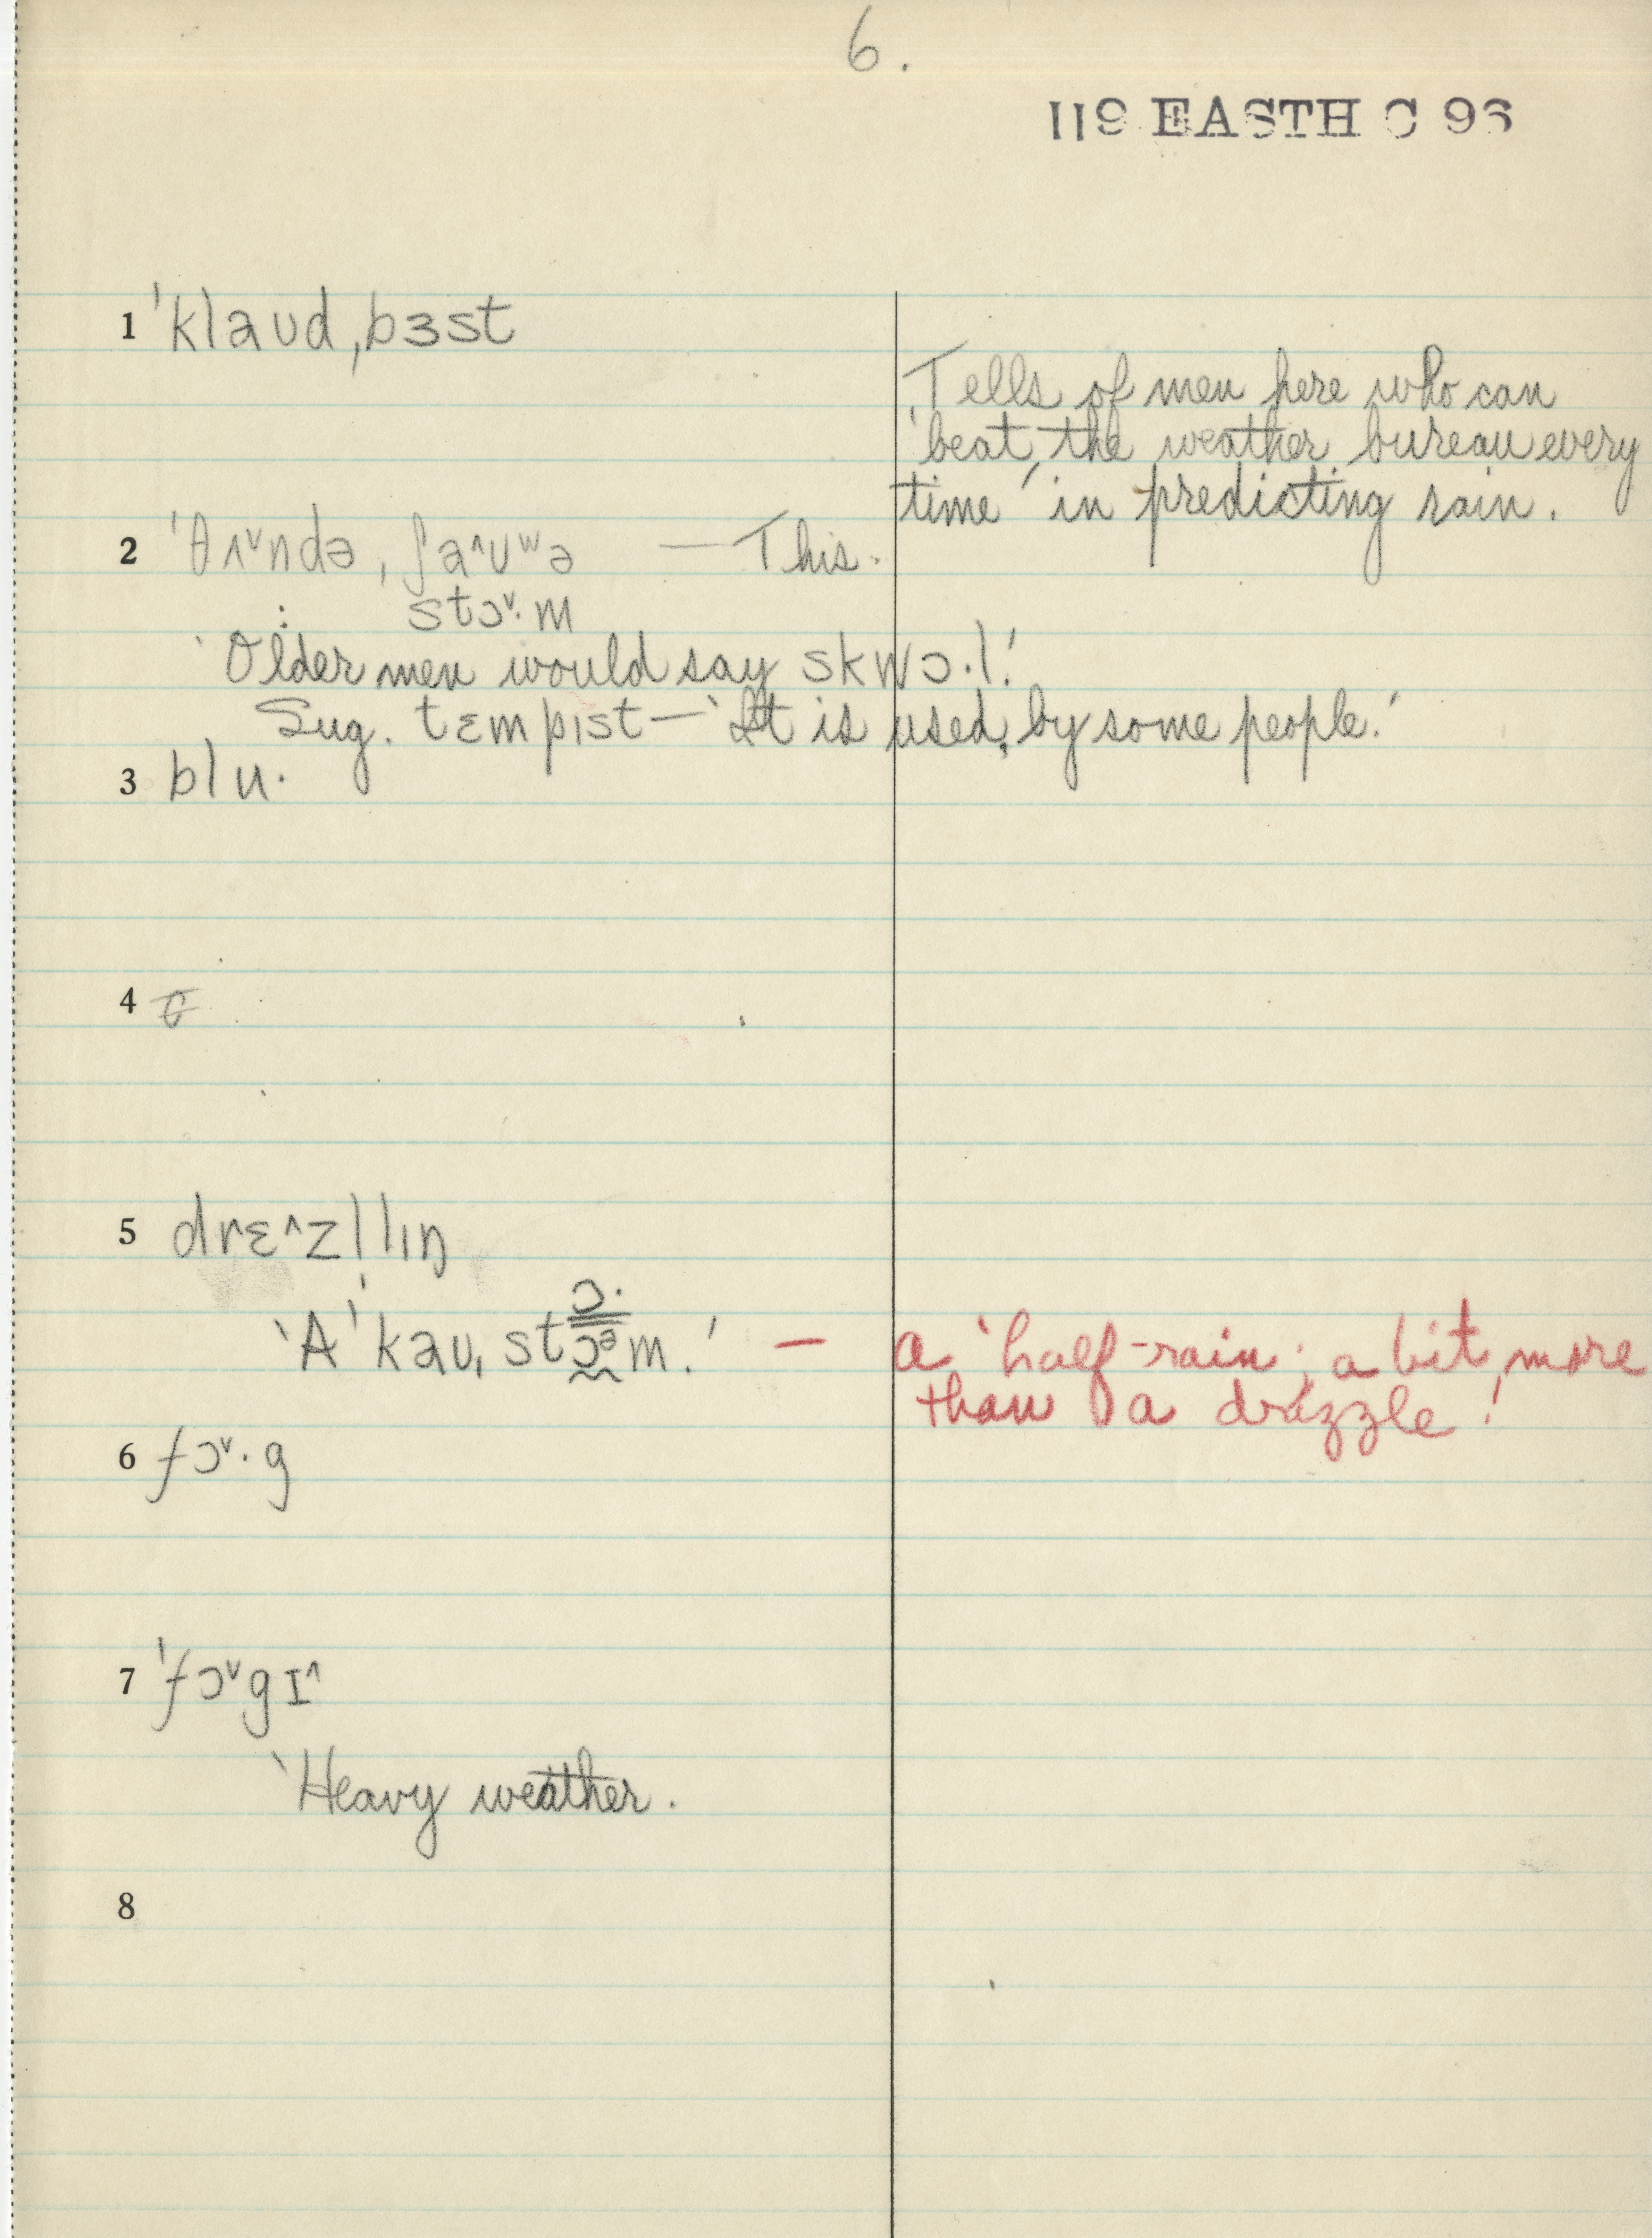 6.
119 EASTH C 96
1 ˈklaʊd ˌbɜst
Tells of men here who can
'beat the weather bureau every
time' in predicting rain.
2 ˈθʌ˅ndə ˌʃa˄ʊʷə — This.
: stɔ˅·m
'Older men would say skwɔ·l.'
Sug. tɛmpɪst — 'It is used, by some people.'
3 blu·
4
5 drɛ˄zl̩lɪŋ
'A ˈkaʊˌstɔᵊm.' — a 'half-rain; a bit more
ɔ·
than a drizzle!
6 fɔ˅·g
7 ˈfɔ˅gɪ˄
'Heavy weather.
8